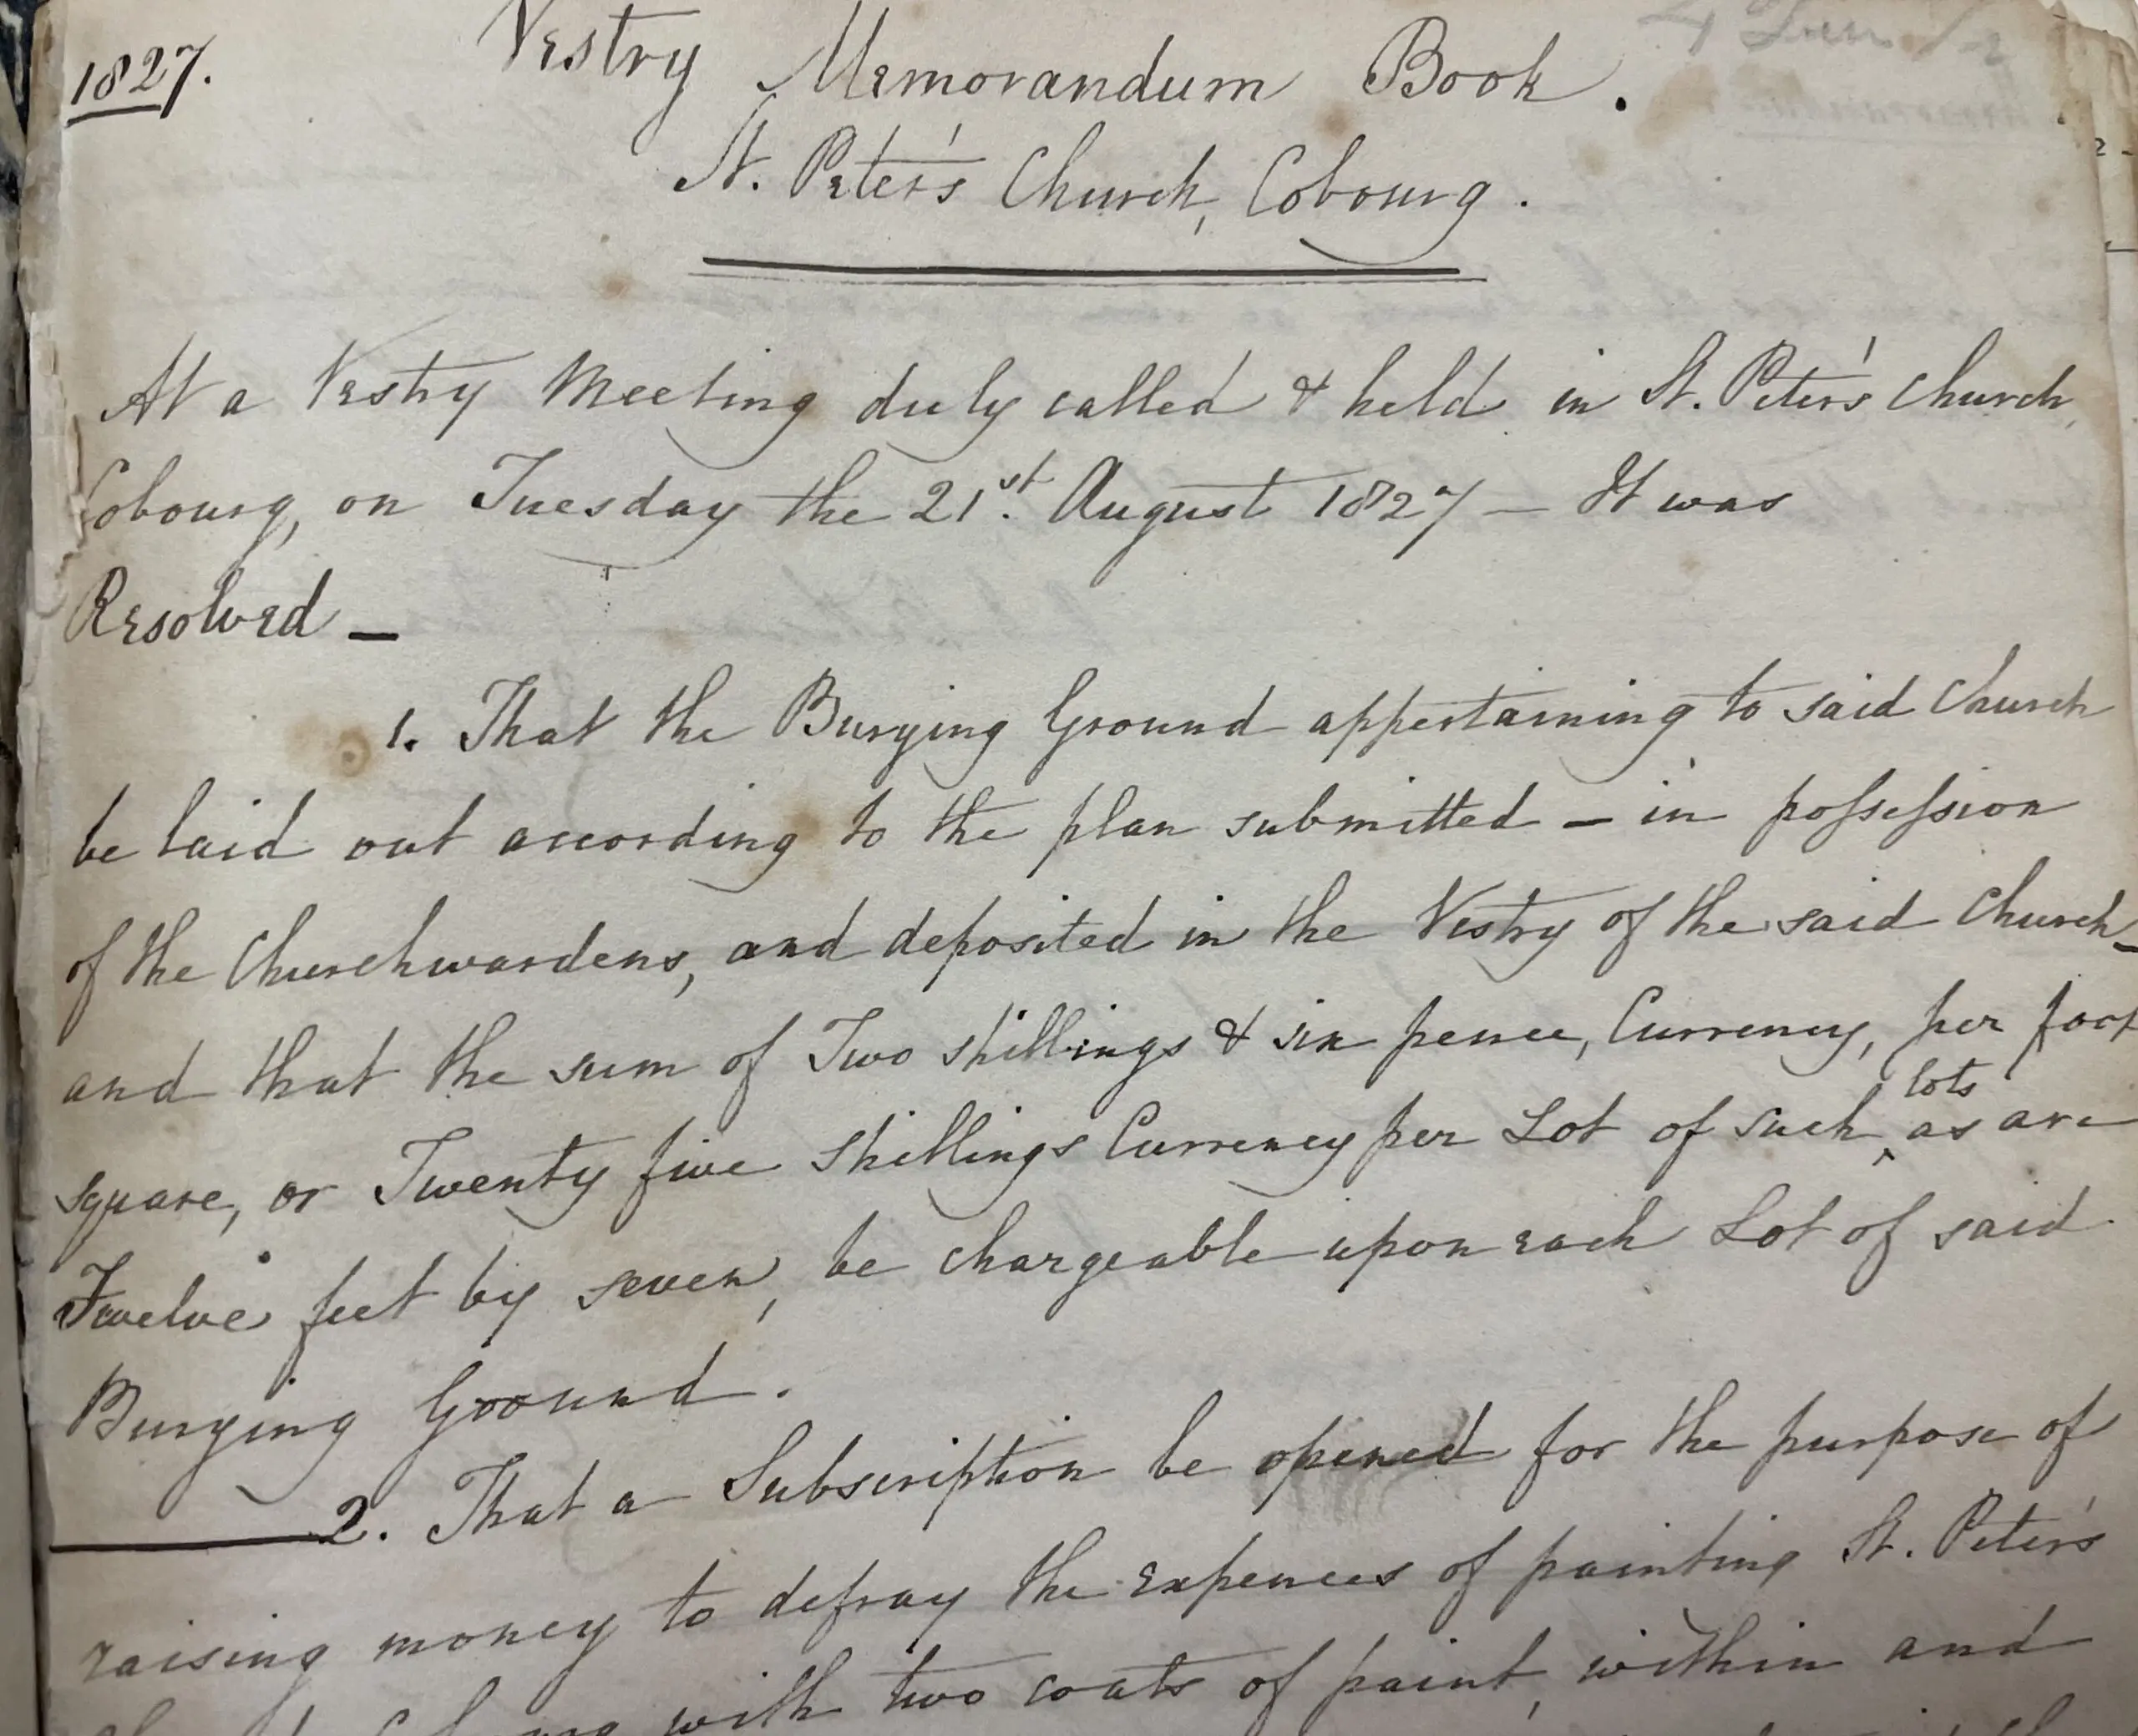 1827.
Vestry Memorandum Book.
St. Peter's Church, Cobourg.
At a Vestry Meeting duly called & held in St. Peter's Church,
Cobourg, on Tuesday the 21st. August 1827 — It was
Resolved —
1. That the Burying Ground appertaining to said Church
be laid out according to the plan submitted — in possession
of the Churchwardens, and deposited in the Vestry of the said Church —
and that the sum of Two shillings & six pence, Currency, per foot
lots
square, or Twenty five Shillings Currency per Lot of such ‸ as are
Twelve feet by seven, be chargeable upon each Lot of said
Burying Ground.
2. That a Subscription be opened for the purpose of
raising money to defray the expences of painting St. Peter's
with two coats of paint, within and